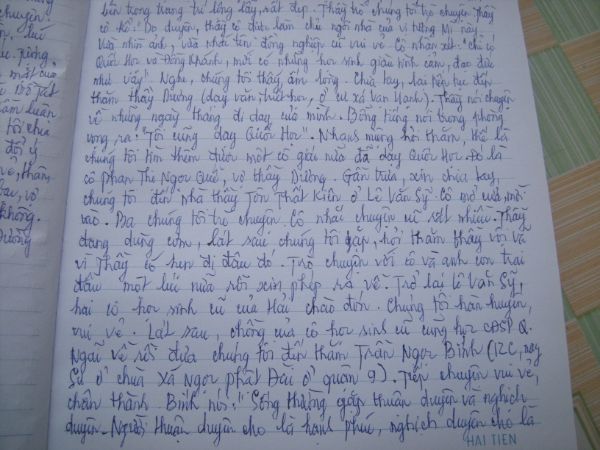 bên trong trang trí lộng lẫy, rất đẹp. Thầy trò chúng tôi trò chuyện. Thầy
có kể: Do duyên, thầy có được làm chủ ngôi nhà của vị tướng Mĩ này.
Vừa nhìn ảnh, vừa nhắc tên đồng nghiệp cũ vui vẻ. Cô nhận xét: "chỉ có
Quốc Học và Đồng Khánh, mới có những học sinh giàu tình cảm, đạo đức
như vậy". Nghe, chúng tôi thấy ấm lòng. Chia tay, lại tiếp tục đến
thăm thầy Dương (dạy văn, triết học, ở cư xá Vạn Hạnh). Thầy nói chuyện
về những ngày tháng đi dạy của mình. Bỗng tiếng nói trong phòng
vọng ra: "Tôi cũng dạy Quốc Học". Nhaus mừng hỏi thăm, thế là
chúng tôi tìm thêm được một cô giáo nữa đã dạy Quốc Học. Đó là
cô Phan Thị Ngọc Quế, vợ thầy Dương. Gần trưa, xin chia tay,
chúng tôi đến nhà thầy Tôn Thất Kiên ở Lê Văn Sỹ. Cô mở cửa, mời
vào. Ba chúng tôi trò chuyện. Cô nhắc chuyện cũ rất nhiều. Thầy
đang dùng cơm, lát sau chúng tôi gặp, hỏi thăm thầy vội vã
vì Thầy có hẹn đi đâu đó. Trò chuyện với cô và anh con trai
đầu một lúc nữa rồi xin phép ra về. Trở lại Lê Văn Sỹ,
hai cô học sinh cũ của Hải chào đón. Chúng tôi hàn huyên,
vui vẻ. Lát sau, chồng của cô học sinh cũ cũng học CĐSP Q.
Ngãi về rồi đưa chúng tôi đến thăm Trần Ngọc Bình (12C, nay
Sư ở chùa Xá Ngọc Phật Đài ở quận 9). Tiếp chuyện vui vẻ,
chân thành Bình nói: "Sống thường gặp thuận duyên và nghịch
duyên. Người thuận duyên cho là hạnh phúc, nghịch duyên cho là
HAI TIEN